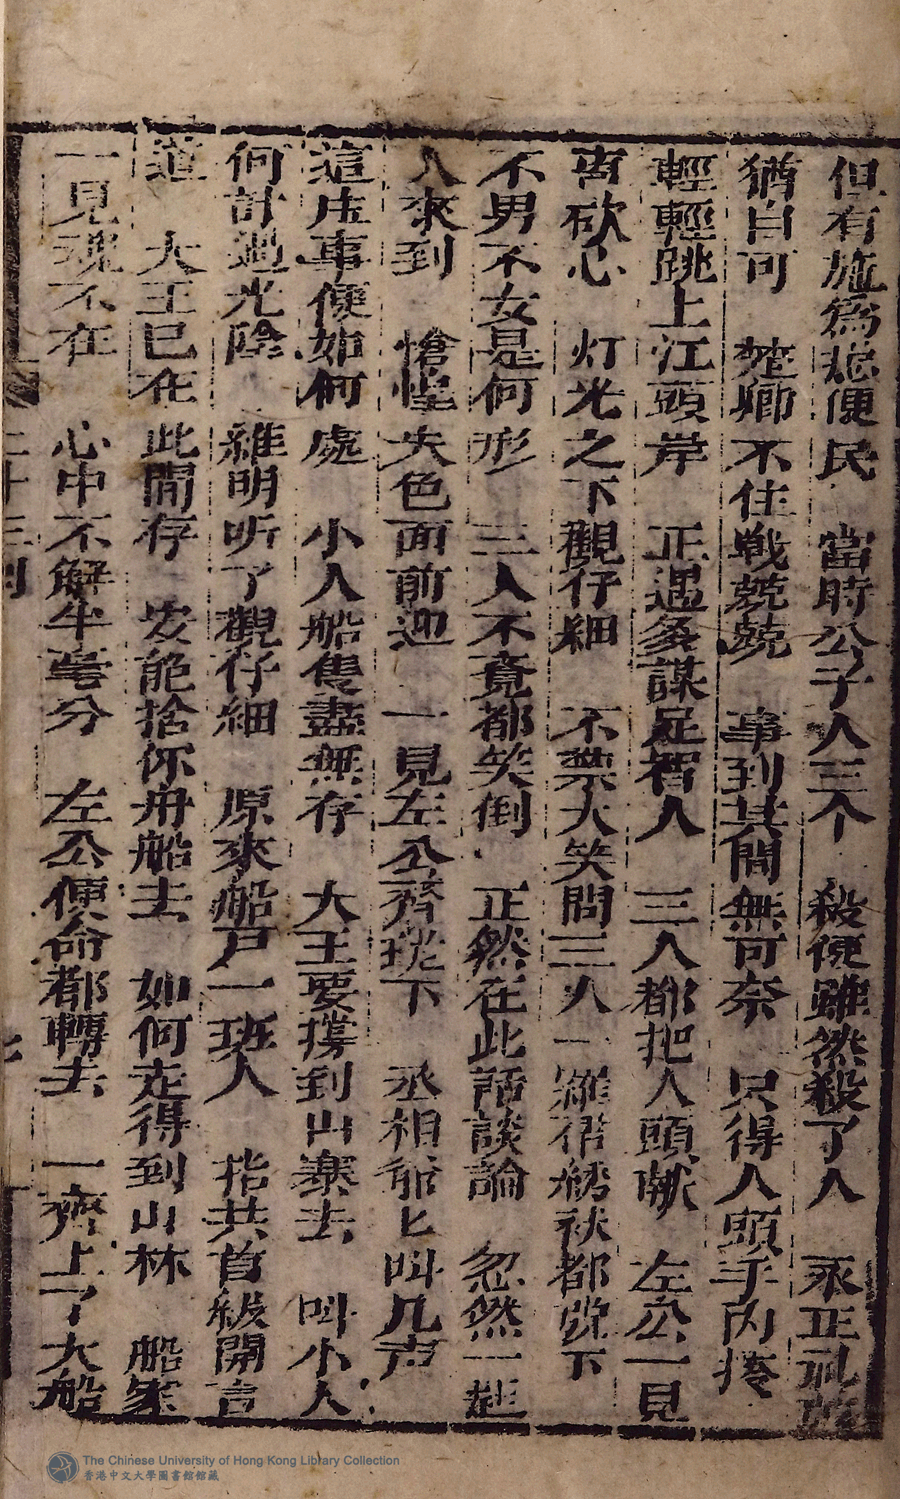 但有施為總便民　當時公子人三个　殺便雖然殺了人　永正礼
猶自可　楚卿不住戰兢兢　事到其間無可奈　只得人頭手內捲
輕輕跳上江頭岸　正遇多謀足智人　三人都把人頭獻　左公一見
砍心　灯光之下觀仔細　不禁大笑問三人　羅裙綉袄都脫下
不男不女是何形　三人不覔都笑倒　正然在此話談論　忽然一起
人來到　愴惶失色面前迎　一見左公齊跪下　丞相爺匕叫几声
這庄事便如何處　小人船隻盡無存　大王要擄到山寨去　叫小人
何計過光陰　維明听了觀仔細　原來船戶一班人　指共首級開言
道　大王已在此間存　安能捨你舟船去　如何走得到山林　船家
一見魂不在　心中不解半毫分　左公便命都轉去　一齊上了大船
二十三回
The Chinese University of Hong Kong Library Collection
香港中文大學圖書館館藏